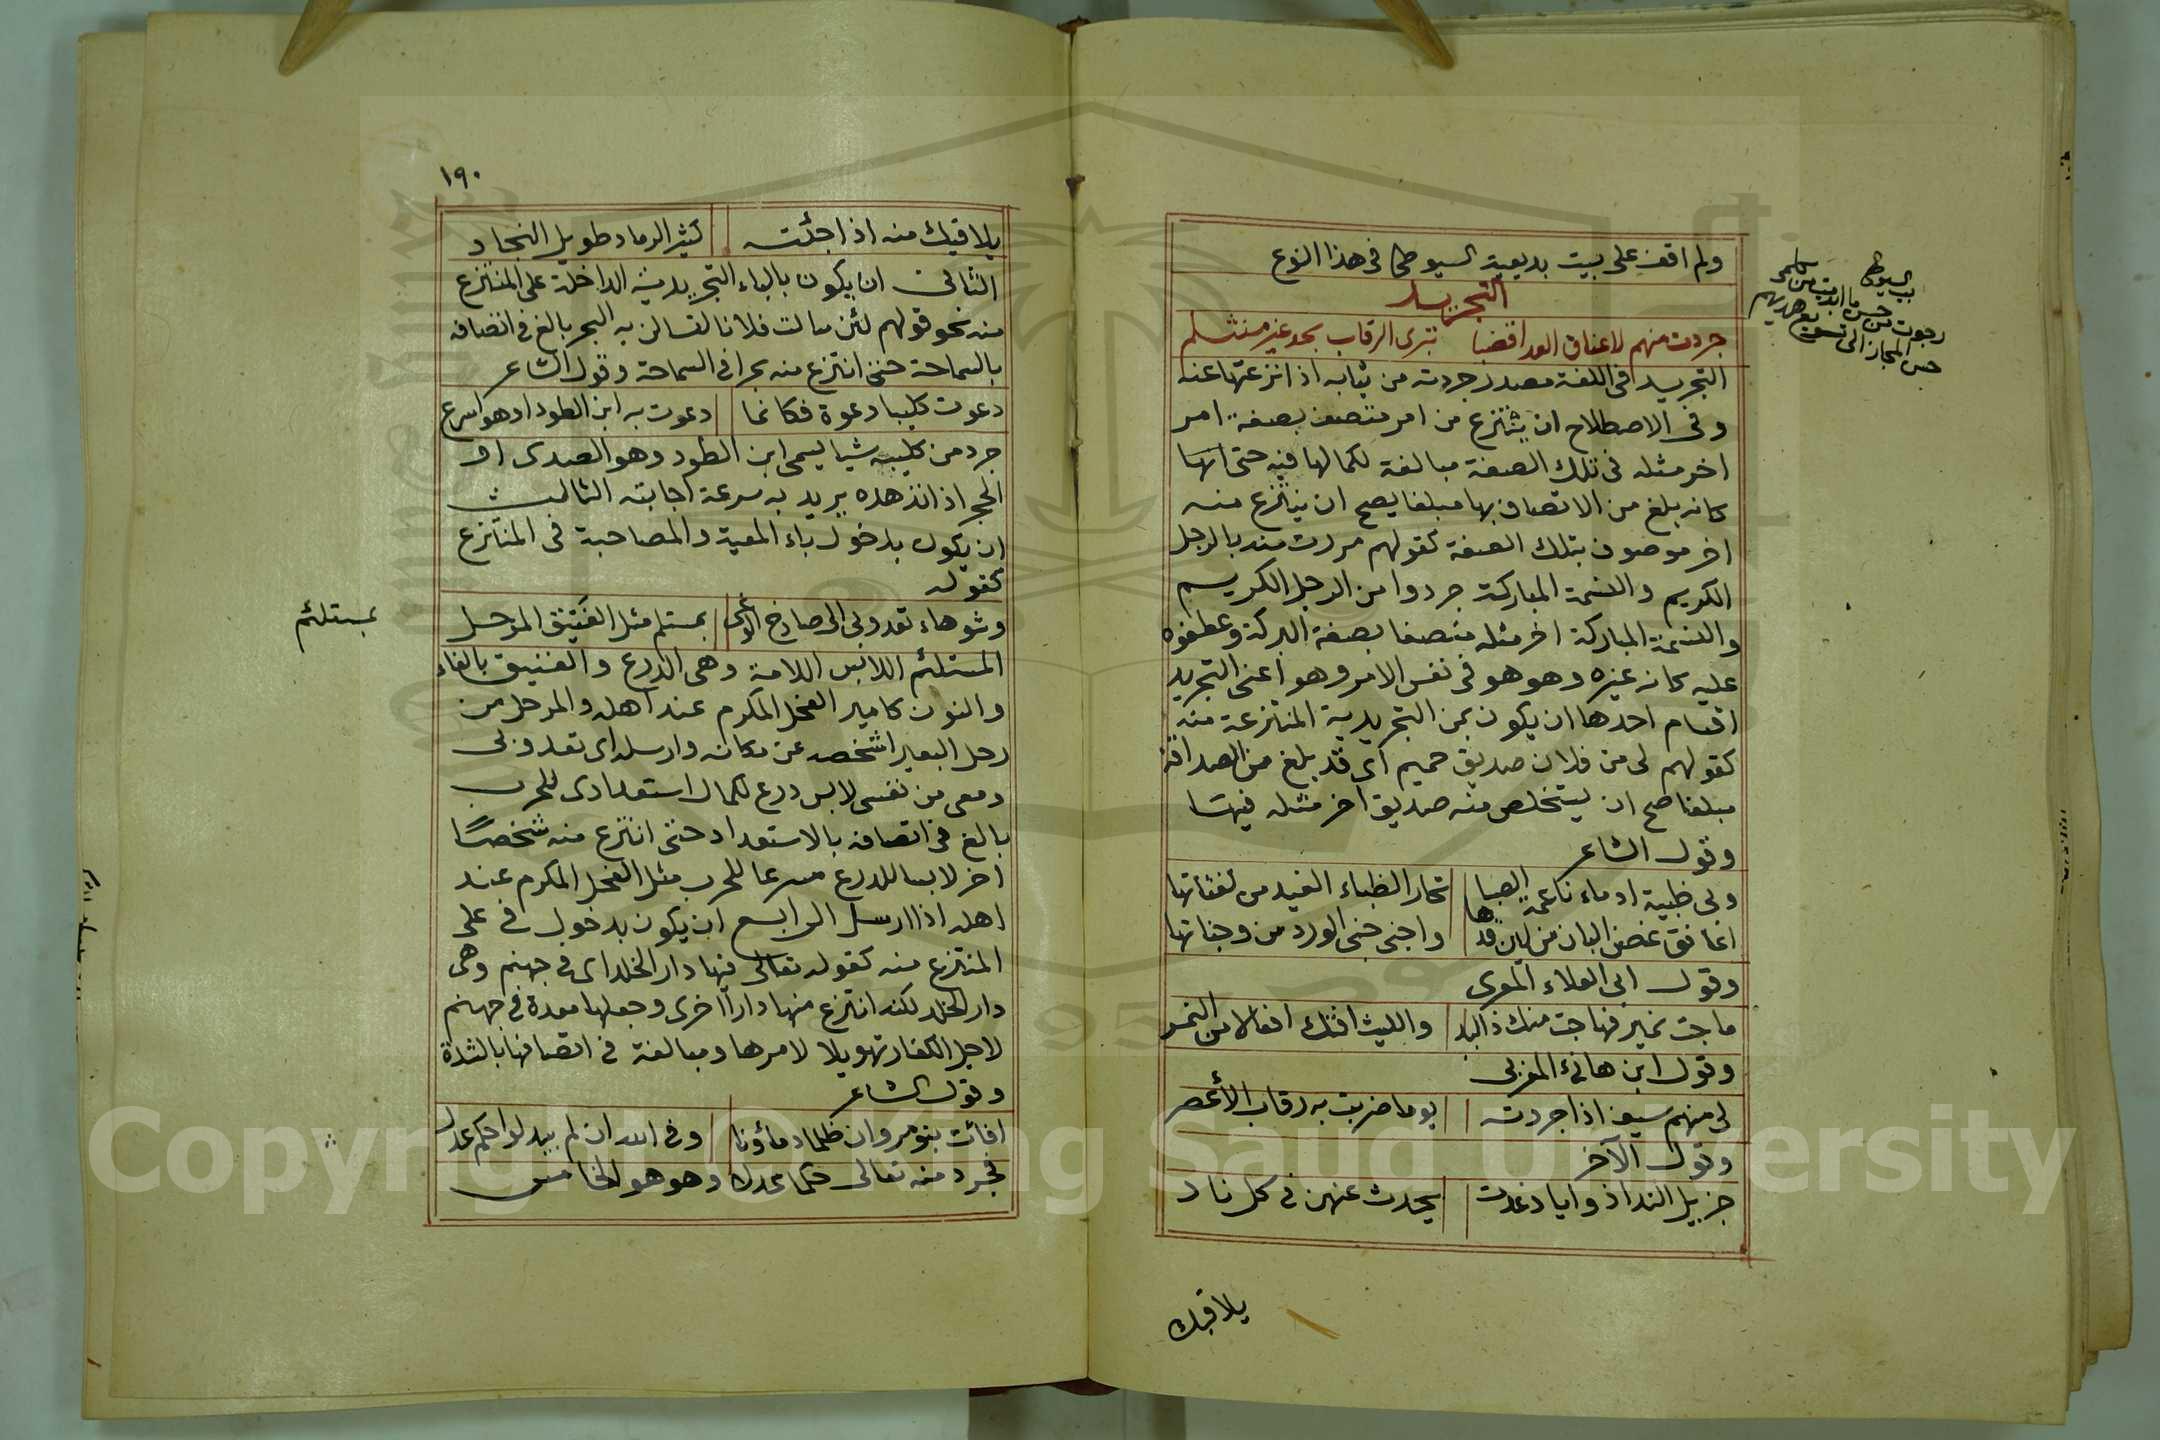 ولم اقف على بيت بديعية السيوطي في هذا النوع
التجريد
جردت منهم لاعناق العدا قضبا تبرى الرقاب بحد غير منثلم
التجريد في اللغة مصدر جردته من ثيابه اذا نزعتها عنه
وفي الاصطلاح ان ينتزع من امر متصف بصفة امر
اخر مثله في تلك الصفة مبالغة لكمالها فيه حتى انها
كانه بلغ من الاتصاف بها مبلغا يصح ان ينتزع منه
اخر موصوف بتلك الصفة كقولهم مررت منه بالرجل
الكريم والنسمة المباركة جردوا من الرجل الكريم
والنسمة المباركة اخر مثله متصفا بصفة البركة وعطفوه
عليه كانه غيره وهو هو في نفس الامر وهو اعني التجريد
اقسام احدها ان يكون بمن التجريدية المنتزعة منه
كقولهم لي من فلان صديق حميم اي قد بلغ من الصداقة
مبلغا صح ان يستخلص منه صديق اخر مثله فيها
وقول الشاعر
وبي ظبية ادماء ناعمة الصبا تحار الظباء الغيد من لفتاتها
اعانق غصن البان من لين قدها واجني جني الورد من وجناتها
وقول ابي العلاء المعري
ماجت نمير فهاجت منك ذا لبد والليث افتك افعالا من النمر
وقول ابن هانئ المغربي
لي منهم سيف اذا جردته يوما ضربت به رقاب الأعصر
وقول الآخر
جزيل الندا ذو ايا دغدت يحدث عنهن في كل ناد
يلاقيك
بيت السيوطي
رجوت من حسن
حسن المجاز الى
١٩٠
يلاقيك منه اذا جئته كثير الرماد طويل النجاد
الثاني ان يكون بالباء التجريدية الداخلة على المنتزع
منه نحو قولهم لئن سالت فلانا لتسالن به البحر بالغ في اتصافه
بالسماحة حتى انتزع منه بحرا في السماحة وقول الشاعر
دعوت كليبا دعوة فكانما دعوت به ابن الطود او هو اسرع
جرد من كليب شيا يسمى ابن الطود وهو الصدى او
الحجر اذا تدهده يريد به سرعة اجابته الثالث
ان يكون بدخول باء المعية والمصاحبة في المنتزع
كقوله
وشوهاء تعدو بي الى صارخ الوغى بمستلم مثل الفنيق المرحل
المستلئم اللابس اللامة وهي الدرع والفنيق بالفاء
والنون كامير الفحل المكرم عند اهله والمرحل من
رحل البعير اشخصه عن مكانه وارسله اي تعدو بي
ومعي من نفسي لابس درع لكمال استعدادي للحرب
بالغ في اتصافه بالاستعداد حتى انتزع منه شخصًا
اخر لابسا للدرع مسرعا للحرب مثل الفحل المكرم عند
اهله اذا ارسل الرابع ان يكون بدخول في على
المنتزع منه كقوله تعالى فيها دار الخلد اي في جهنم وهي
دار الخلد لكنه انتزع منها دارا اخرى وجعلها معدة في جهنم
لاجل الكفار تهويلا لامرها ومبالغة في اتصافها بالشدة
وقول الشاعر
افائت بنو مروان ظلما دماؤنا وفي الله ان لم يعدلوا حكم عدل
فجرد منه تعالى حكما عدلا وهو هو الخامس
بمستلئم
Copyright © King Saud University